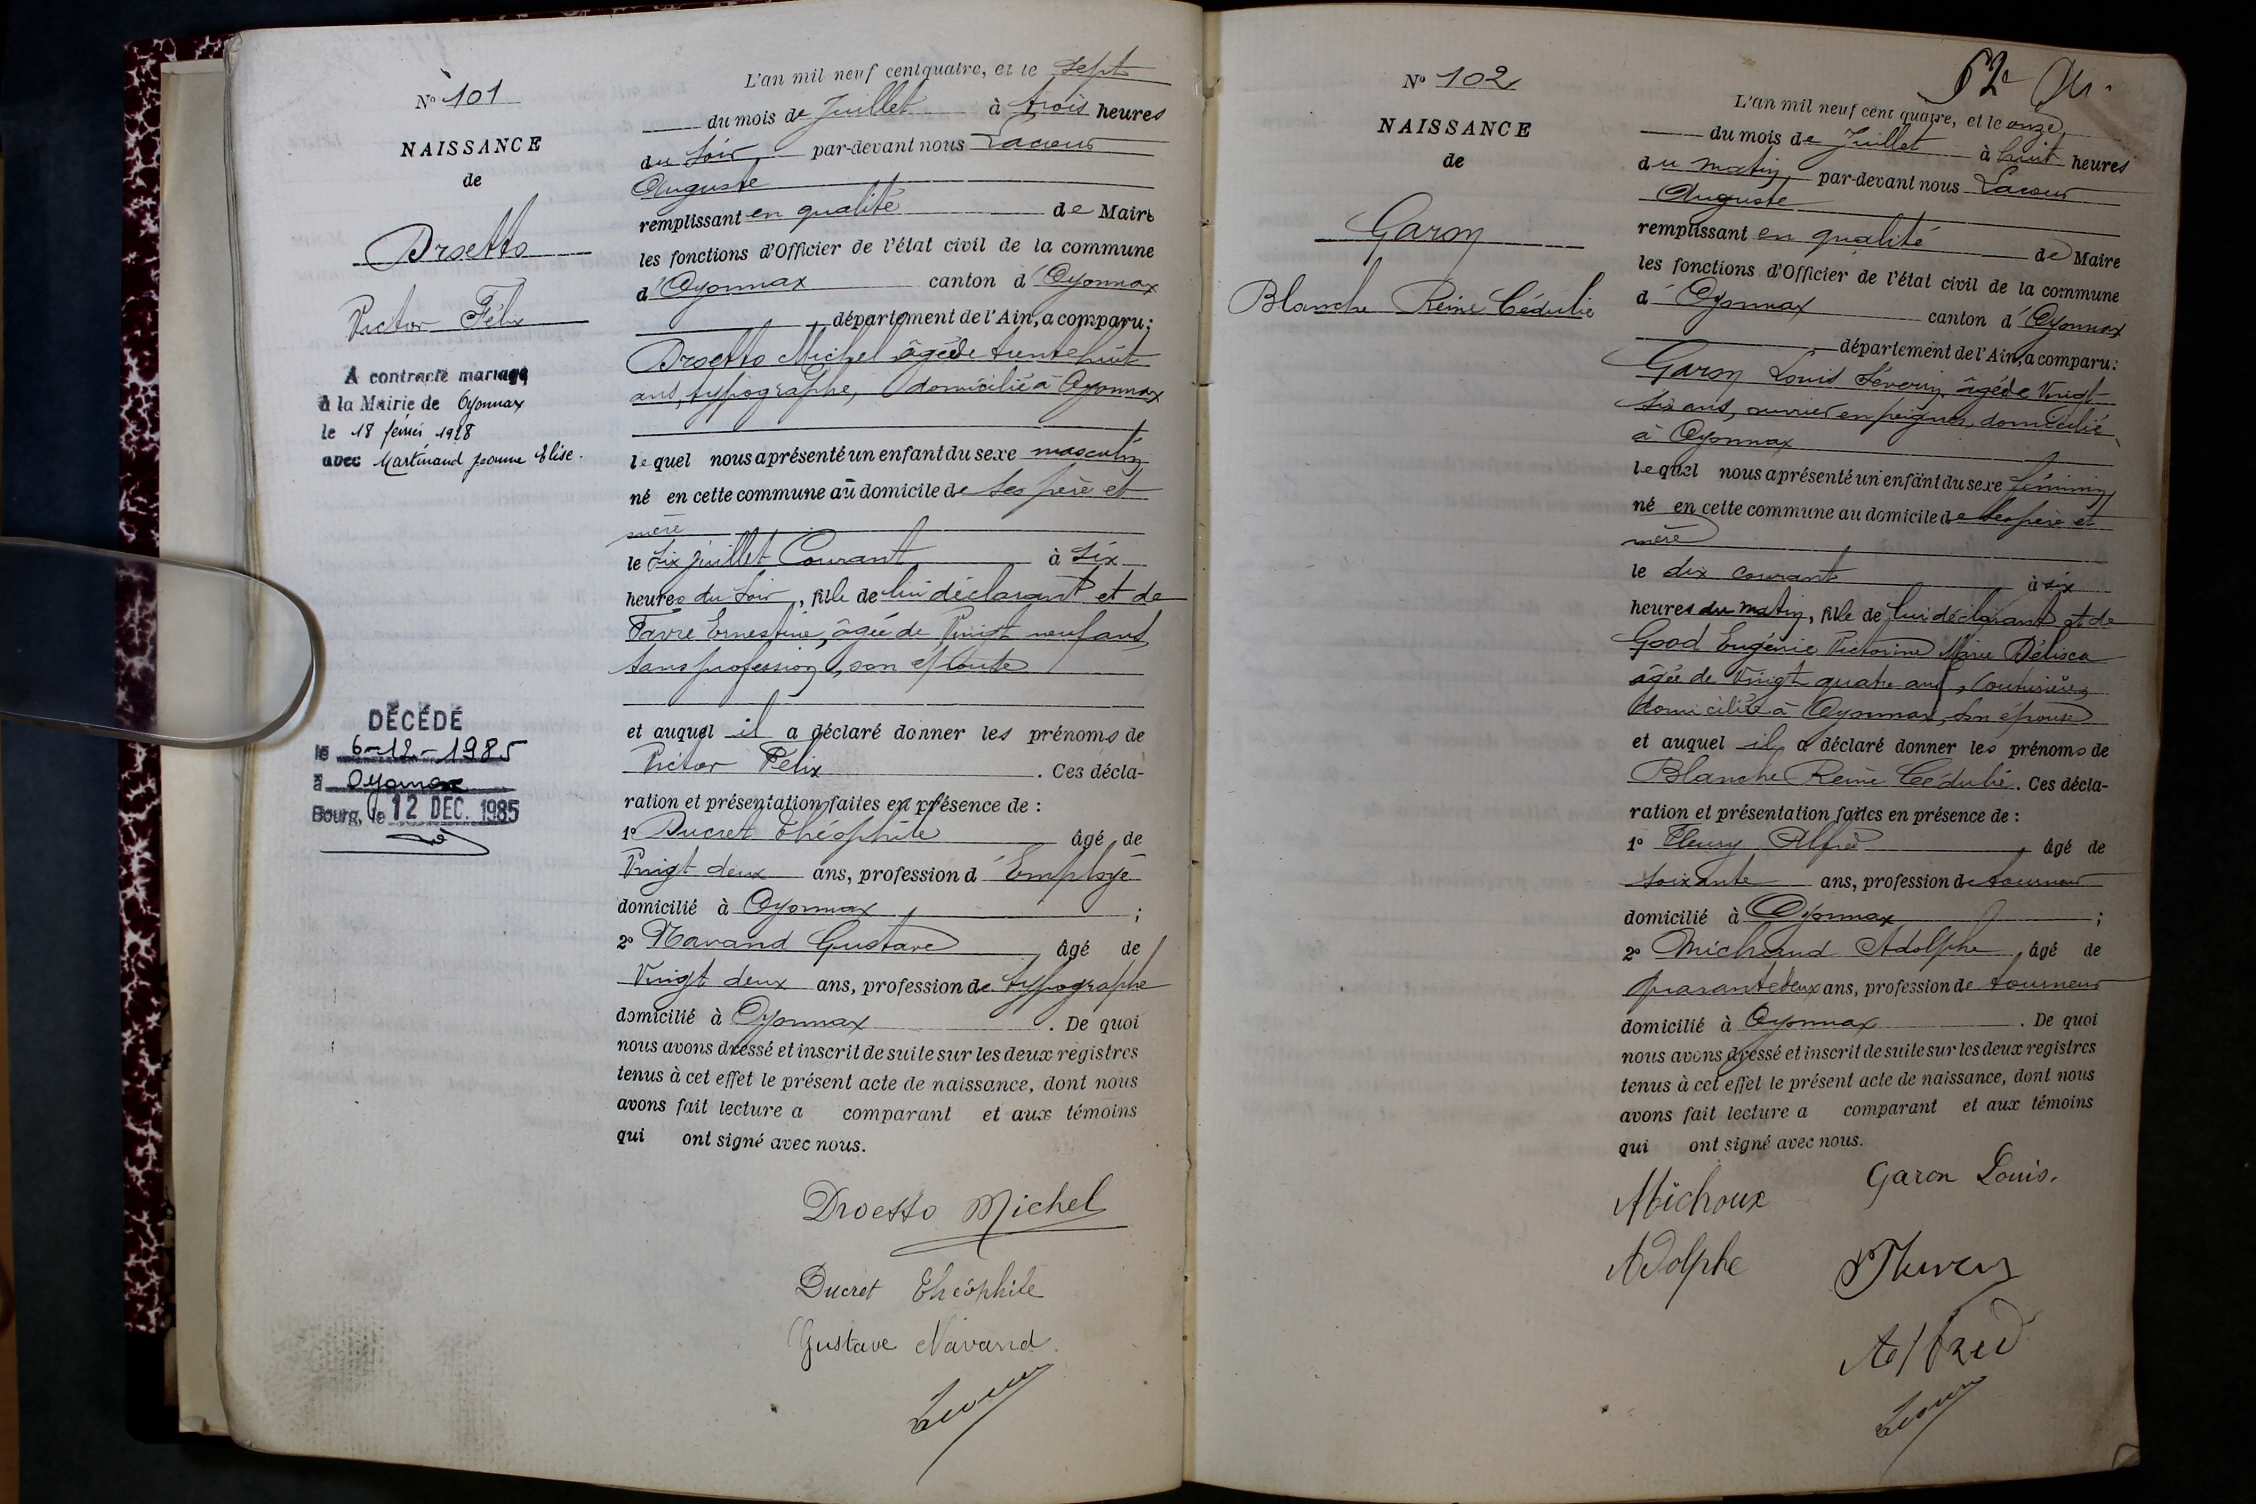 N° 101
NAISSANCE
de
Droetto
Victor Félix
A contracté mariage
à la Mairie de Oyonnax
le 18 février 1928
avec Martinand Jeanne Elise.
DÉCÉDÉ
le 6-12-1985
à Oyonnax
Bourg, le 12 DEC. 1985
L'an mil neuf cent quatre, et le sept
du mois de Juillet à trois heures
du soir, par-devant nous Lacour
Auguste
remplissant en qualité de Maire
les fonctions d'Officier de l'état civil de la commune
d'Oyonnax canton d'Oyonnax
département de l'Ain, a comparu:
Droetto Michel âgé de trente huit
ans, typographe, domicilié à Oyonnax
lequel nous a présenté un enfant du sexe masculin
né en cette commune au domicile de ses père et
mère
le six juillet Courant à six
heures du soir, fils de lui déclarant et de
Favre Ernestine, âgée de Vingt neuf ans,
sans profession, son épouse
et auquel il a déclaré donner les prénoms de
Victor Félix. Ces décla-
ration et présentation faites en présence de :
1° Ducret Théophile âgé de
Vingt deux ans, profession d'Employé
domicilié à Oyonnax ;
2° Navand Gustave âgé de
Vingt deux ans, profession de typographe
domicilié à Oyonnax. De quoi
nous avons dressé et inscrit de suite sur les deux registres
tenus à cet effet le présent acte de naissance, dont nous
avons fait lecture a comparant et aux témoins
qui ont signé avec nous.
Droetto Michel
Ducret Théophile
Gustave Navand
Lacour
62
N° 102
NAISSANCE
de
Garon
Blanche Reine Cédulie
L'an mil neuf cent quatre, et le onze
du mois de Juillet à huit heures
du matin, par-devant nous Lacour
Auguste
remplissant en qualité de Maire
les fonctions d'Officier de l'état civil de la commune
d'Oyonnax canton d'Oyonnax
département de l'Ain, a comparu:
Garon Louis Séverin âgé de Vingt-
six ans, ouvrier en peignes, domicilié
à Oyonnax
lequel nous a présenté un enfant du sexe féminin
né en cette commune au domicile de ses père et
mère
le dix courant à six
heures du matin, fille de lui déclarant et de
Good Eugénie Victorine Marie Délisca
âgée de Vingt quatre ans, Couturière,
domiciliée à Oyonnax, son épouse
et auquel il a déclaré donner les prénoms de
Blanche Reine Cédulie. Ces décla-
ration et présentation faites en présence de :
1° Fleury Alfred âgé de
soixante ans, profession de tourneur
domicilié à Oyonnax ;
2° Michaud Adolphe, âgé de
quarante deux ans, profession de tourneur
domicilié à Oyonnax. De quoi
nous avons dressé et inscrit de suite sur les deux registres
tenus à cet effet le présent acte de naissance, dont nous
avons fait lecture a comparant et aux témoins
qui ont signé avec nous.
Garon Louis.
Michoux
Adolphe
Alfred
Lacour